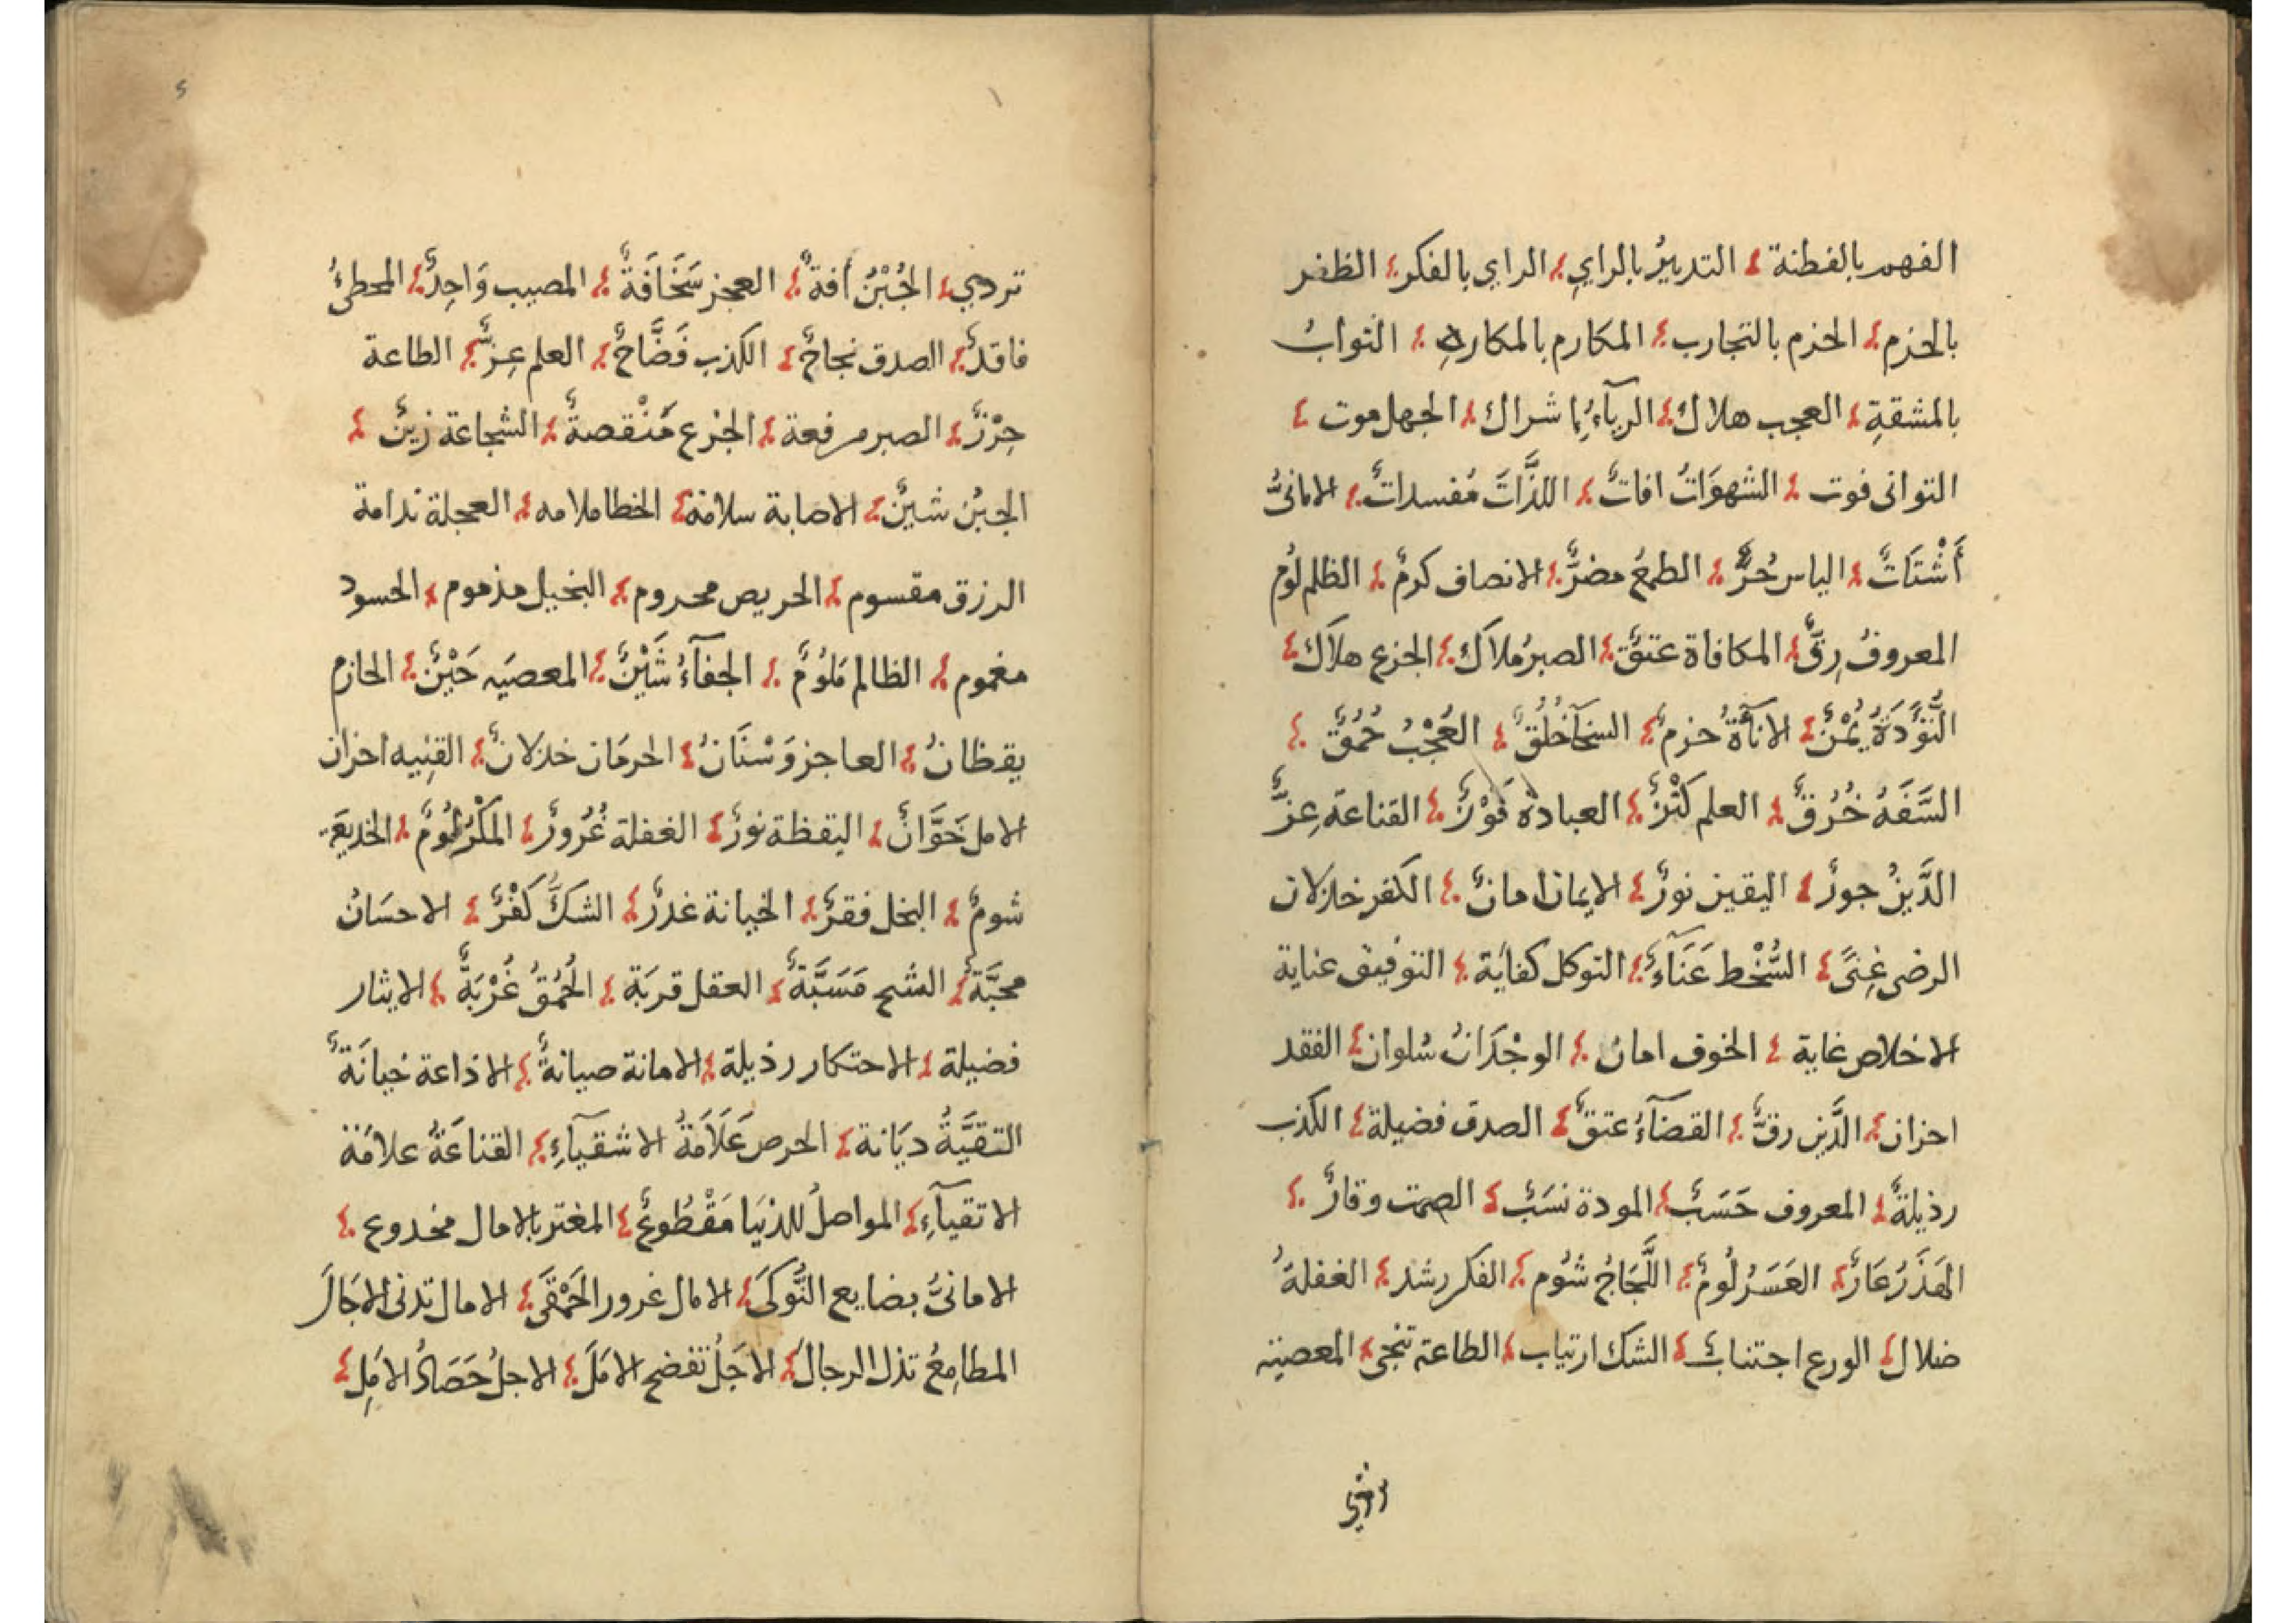 الفهم بالفطنة التدبيرُ بالراي الراي بالفكر الظفر
بالحزم الحزم بالتجارب المكارم بالمكاره الثوابُ
بالمشقةِ العجب هلاك الريآءُ اشراك الجهل موت
التوانى فوت الشهوَاتُ افاتٌ اللذَّات مُفسداتٌ الامانىُّ
أَشْتَاتٌ الياس حُرٌّ الطمعُ مضرٌّ الانصاف كرمٌ الظلم لُوم
المعروفُ رِقٌّ المكافاة عتقٌ الصبرُ ملاَك الجزع هلاَك
التُّؤَدَةُ يُمْنٌ الاناَةُ حزمٌ السخآخُلُقٌ العُجْبُ حُمُقٌ
السَّفَهُ خُرُقٌ العلم كَنْزٌ العبادة فَوْزٌ القناعة عِزٌّ
الدَّينُ جورٌ اليقين نورٌ الايمان امانٌ الكفر خذلان
الرضى غِنىً السُّخْط عَنَآءٌ التوكل كفاية التوفيق عناية
الاخلاص غاية الخوف امان الوجْدَانُ سُلوان الفقد
احزان الدَّين رقٌّ القضآءُ عتقٌ الصدق فضيلة الكذب
رذيلةٌ المعروف حَسَبٌ المودة نسَبٌ الصمت وقارٌ
الهَذَرُ عَارٌ العَسَرُ لُومٌ اللَّجَاجُ شُوم الفكر رشد الغفلةُ
ضلال الورع اجتنابٌ الشك ارتياب الطاعة تنجى المعصيته
تردي
١
٢
تردي الجُبْنُ أفةٌ العجز سَخَافَةٌ المصيب وَاجِدٌ المخطئُ
فاقدٌ الصدق نجاحٌ الكذب فَضَّاحٌ العلم عِزٌّ الطاعة
حِرْزٌ الصبر مرفعة الجزع مَنْقصةٌ الشجاعة زينٌ
الجبنُ شينٌ الاصابة سلامة الخطا ملامه العجلة ندامة
الرزق مقسوم الحريص محروم البخيل مذموم الحسود
مغموم الظالم مَلُومٌ الجفآءُ شَيْنٌ المعصيَه حَيْنٌ الحازم
يقظانُ العاجز وَسْنَانُ الحرمَان خذلانٌ القِنِيه احزان
الامل خَوَّانٌ اليقظة نورٌ الغفلة غُرُورٌ المَكْرُ لُومٌ الخديعَة
شومٌ البخل فقرٌ الخيانة غدرٌ الشكُّ كُفْرٌ الاحسَانُ
محبَّةٌ الشح مَسَبَّةٌ العقل قربَة الحُمْقُ غُرْبَةٌ الايثار
فضيلة الاحتكار رذيلة الامانة صيانةٌ الاذاعة خيانَةٌ
التقيَّةُ ديَانة الحرص عَلَامَةُ الاشقيآءِ القناعَةُ علامَة
الاتقيآءِ المواصلُ للدنيَا مَقْطُوعٌ المغتر بالامال مخدوع
الامانىُّ بضايع النَّوكَى الامال غرور الحَمْقَى الامال تدنى الاجَالَ
المطامِعُ تذل الرجال الاجَلُ تفضح الامَلَ الاجلُ حَصَادُ الامَلِ